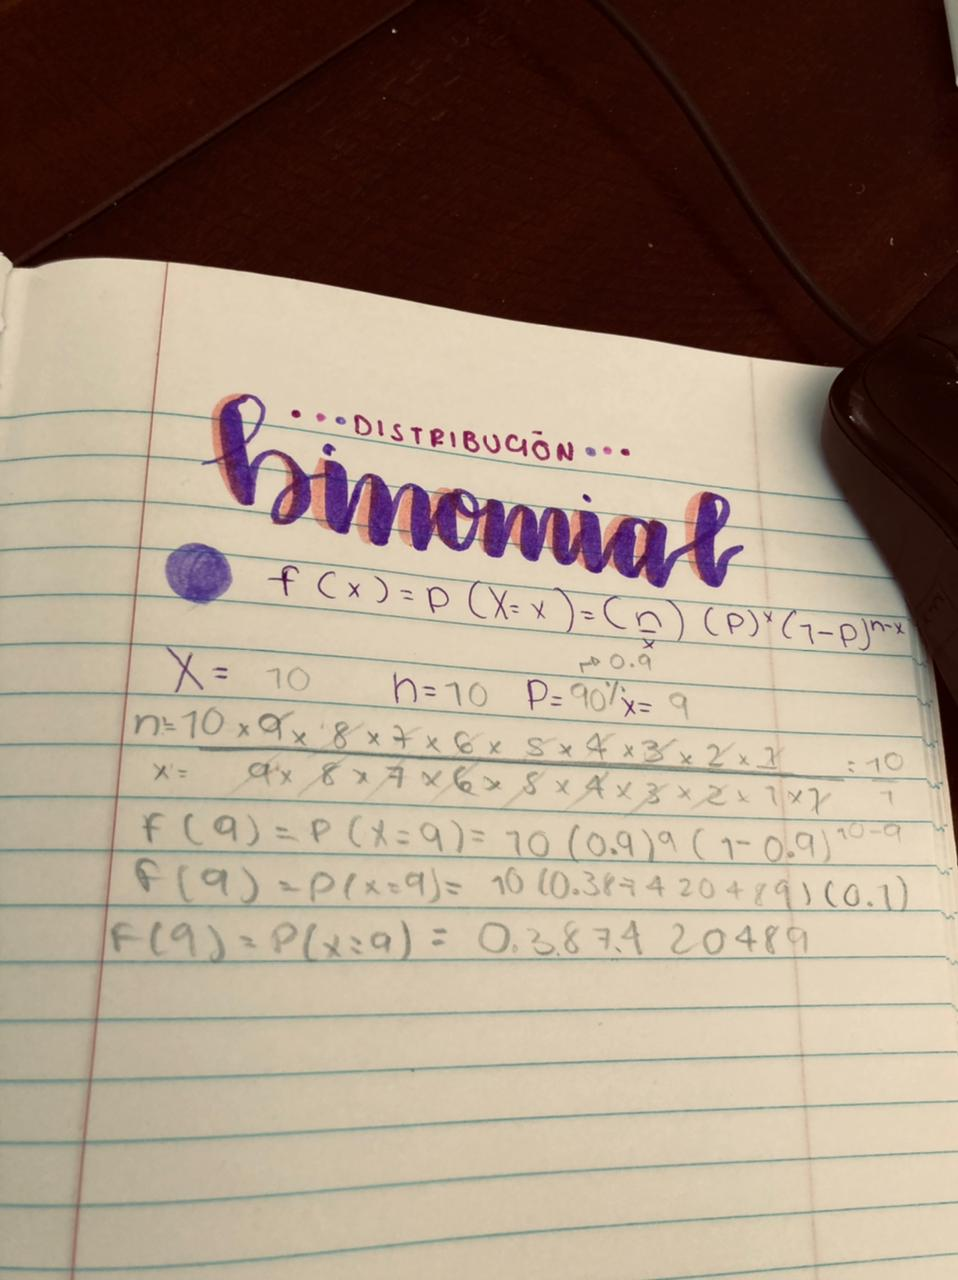 ...DISTRIBUCIÓN...
binomial
f(x)=P(X=x)=(n/x)(P)ˣ(1-P)ⁿ⁻ˣ
→0.9
X= 10 n=10 P=90% x= 9
n= 10 x 9 x 8 x 7 x 6 x 5 x 4 x 3 x 2 x 1 = 10
x= 9 x 8 x 7 x 6 x 5 x 4 x 3 x 2 x 1 x 1 1
f(9)=P(x=9)= 10 (0.9)9 (1-0.9)¹⁰⁻⁹
f(9)=P(x=9)= 10 (0.387420489)(0.1)
F(9)= P(x=9) = 0.387420489